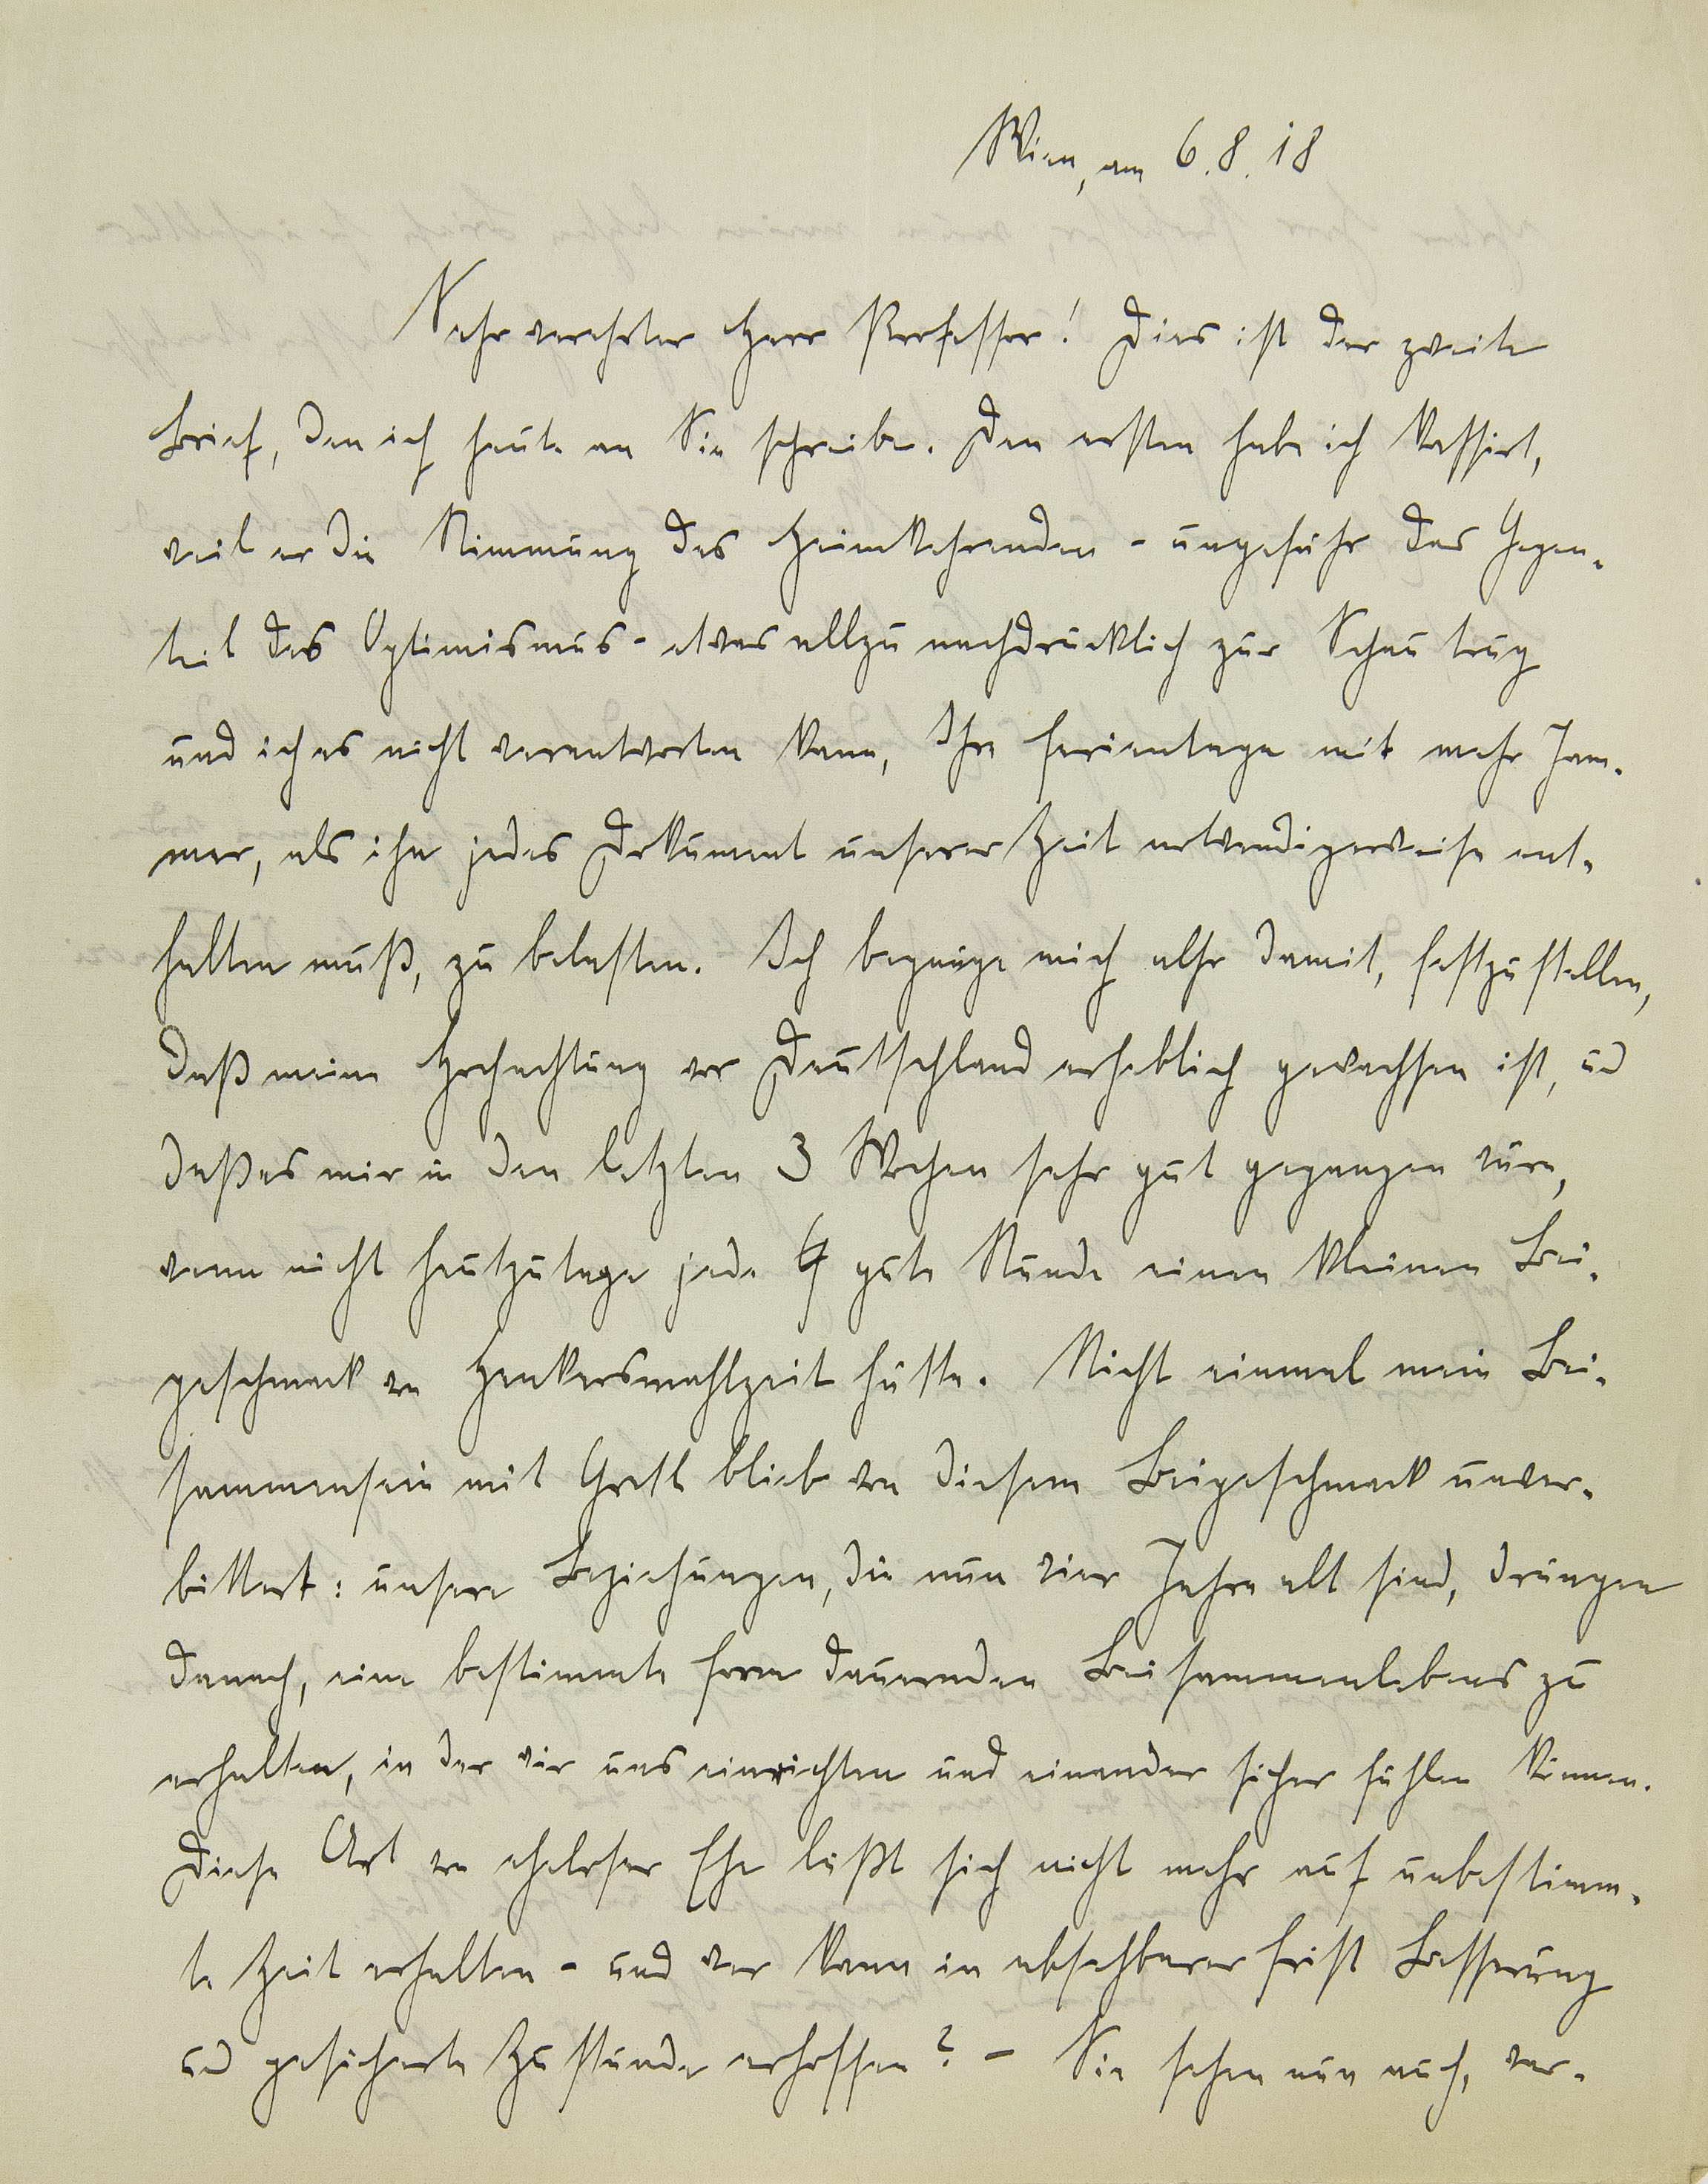 Wien, am 6.8.18
Sehr verehrter Herr Professor! Dies ist der zweite
Brief, den ich heute an Sie schreibe. Den ersten habe ich kassirt,
weil er die Stimmung des Heimkehrenden - ungefähr das Gegen-
teil des Optimismus - etwas allzu nachdrücklich zur Schau trug
und ich es nicht verantworten kann, Ihre Ferientage mit mehr Jam-
mer, als ihn jedes Dokument unserer Zeit notwendigerweise ent-
halten muß, zu belasten. Ich begnüge mich also damit, festzustellen,
daß meine Hochachtung vor Deutschland erheblich gewachsen ist, ud
daß es mir in den letzten 3 Wochen sehr gut gegangen wäre,
wenn nicht heutzutage jede gute Stunde einen kleinen Bei-
geschmack von Henkersmahlzeit hätte. Nicht einmal mein Bei-
sammensein mit Gretl blieb von diesem Beigeschmack unver-
bittert: unsere Beziehungen, die nun vier Jahre alt sind, drängen
danach, eine bestimmte Form dauernden Beisammenlebens zu
erhalten, in der wir uns einrichten und einander sicher fühlen können.
Diese Art von eheloser Ehe läßt sich nicht mehr auf unbestimm-
te Zeit erhalten - und wer kann in absehbarer Frist Besserung
ud gesicherte Zustände erhoffen? - Sie sehen nun auch, ver-